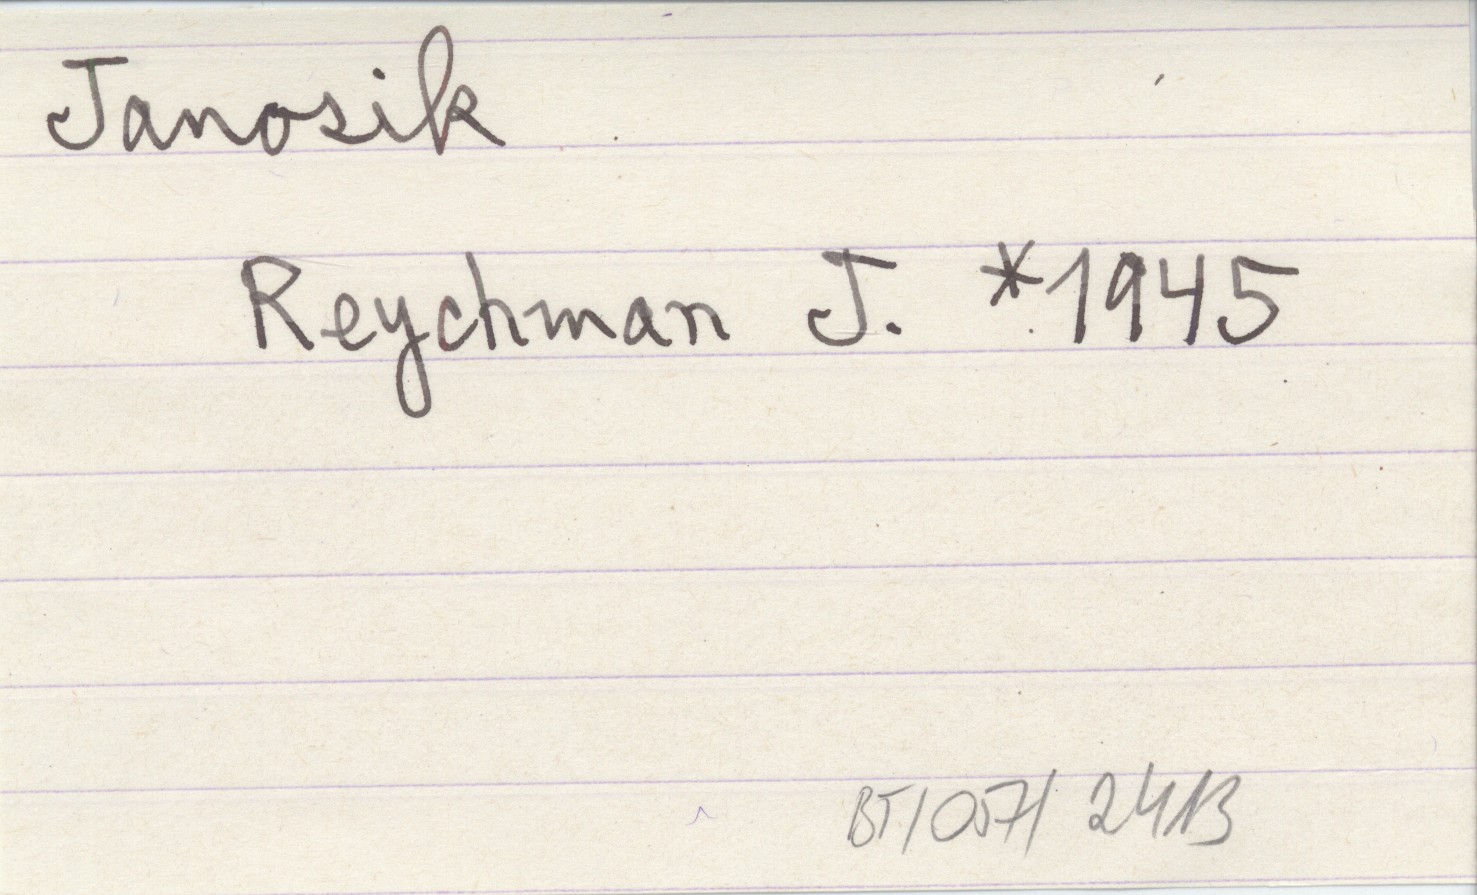 Janosik
Reychman J. *1945
BT/057/2413